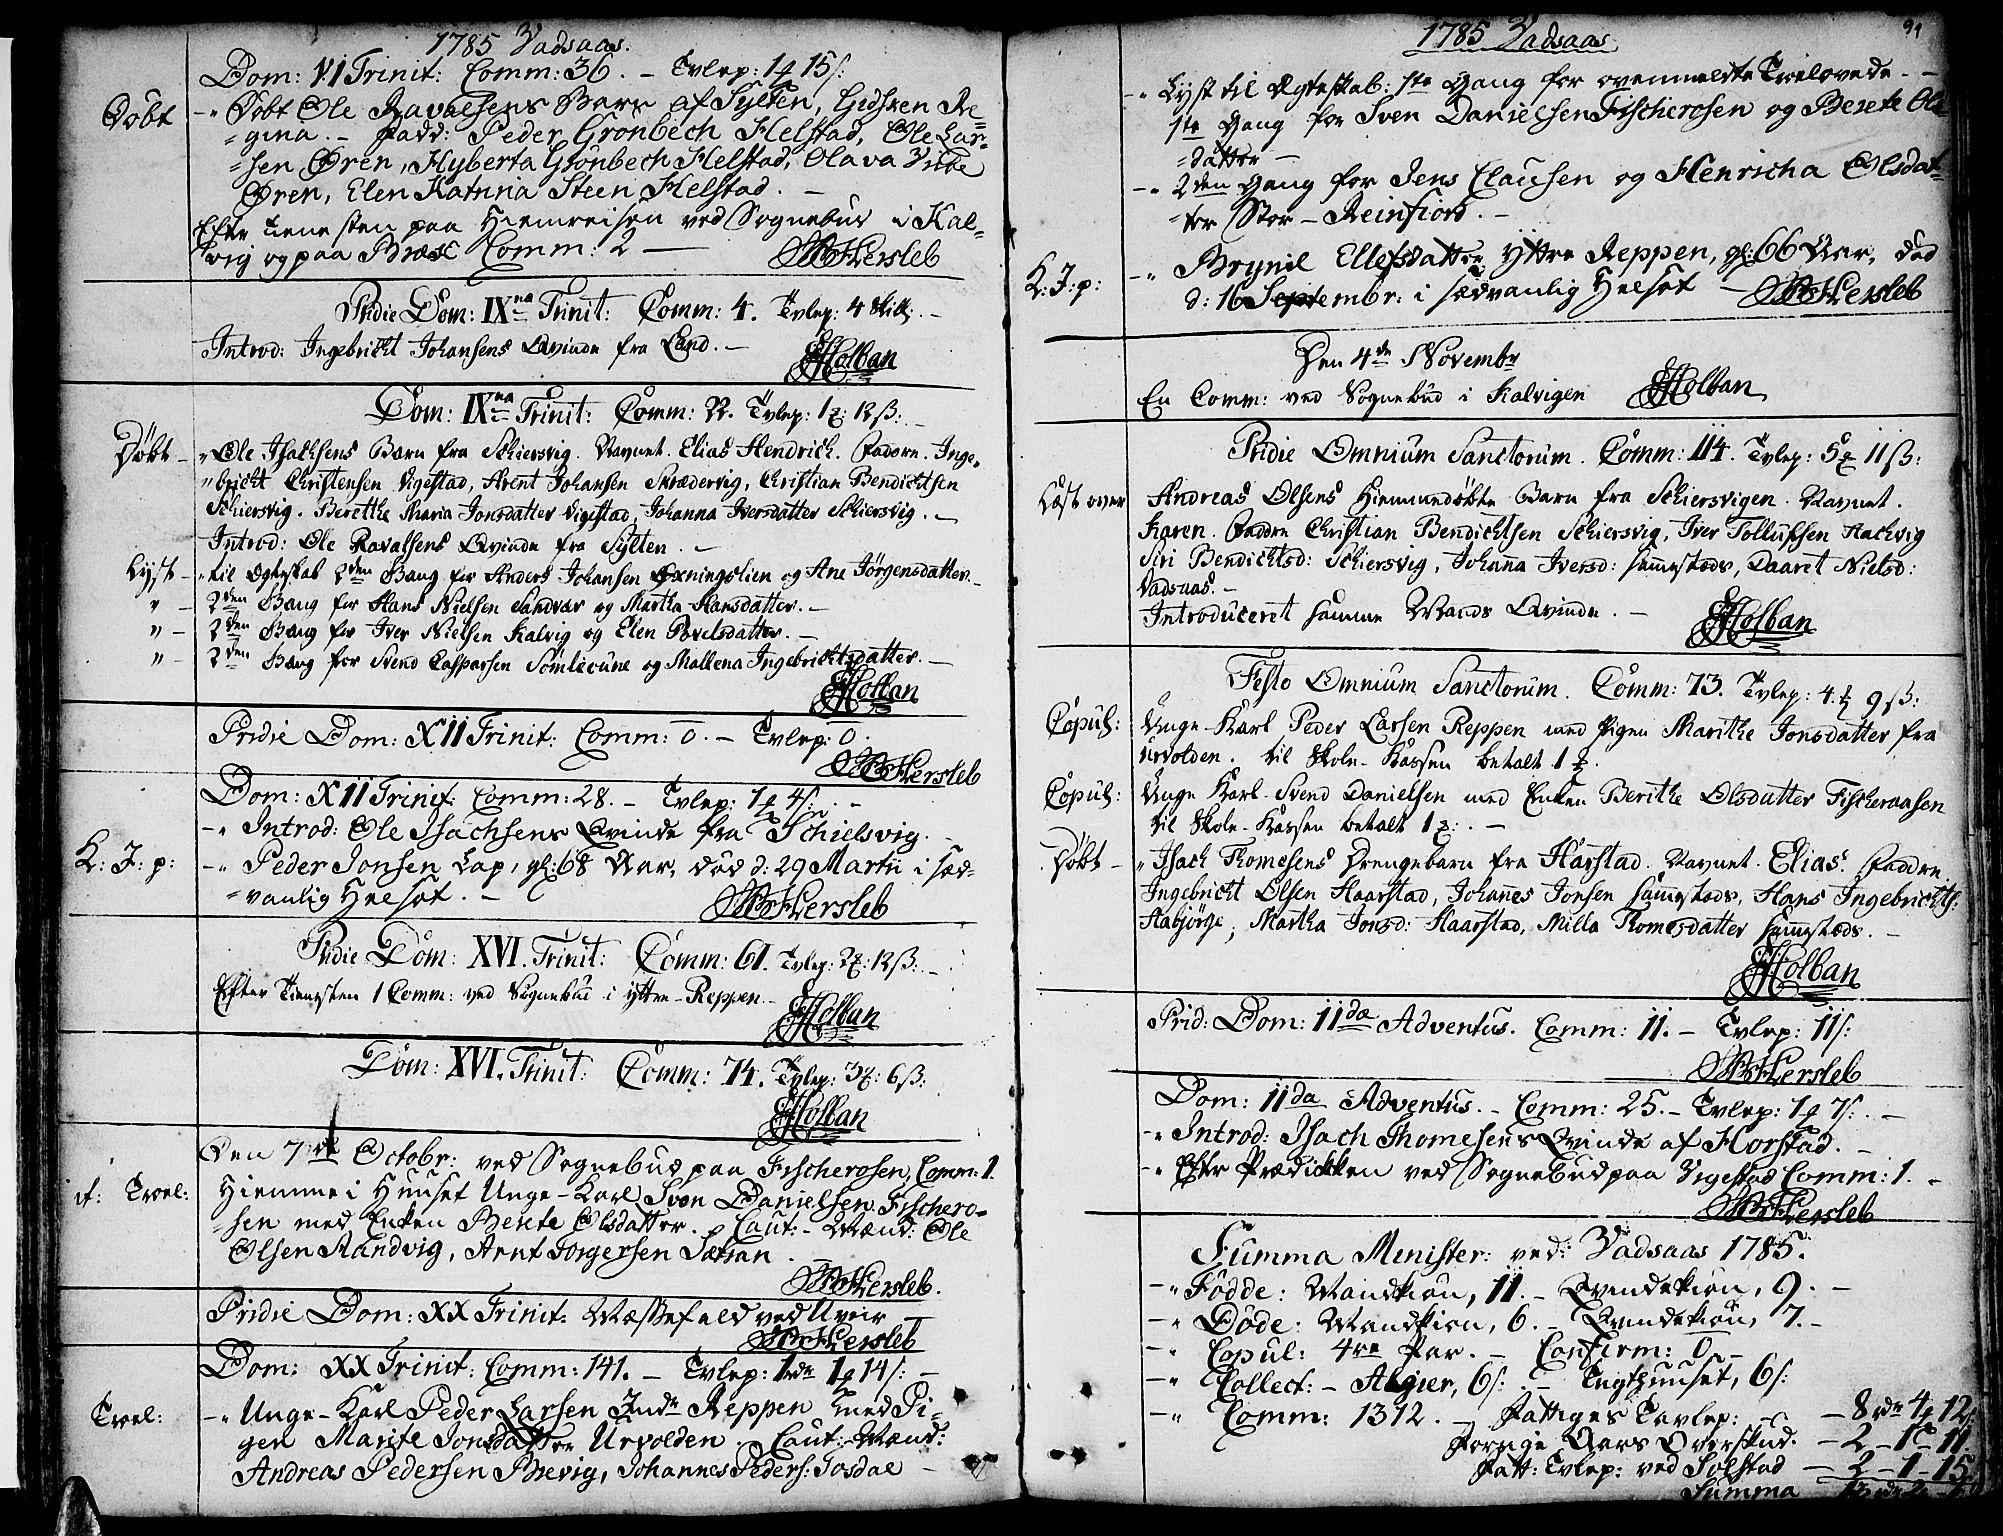 1785 Vadsaas.
Dom: VI Trinit: Comm: 36. – Tvlep: 1 15 s:
Döbt -" Döbt Ole Ravalsens Barn af Sylten, Gidsken Re=
=gina. – Fadd: Peder Grönbech Helstad, Ole Lar=
=sen Øren, Hyberta Grönbech Helstad, Olava Vibe
Øren, Elen Katrina Steen Helstad. –
Efter Tienesten paa Hiemreisen ved Sognebud i Kal=
vig og paa Comm: 2 — Hersleb
Pridie Dom: IXna Trinit: Comm: 4. Tvlep: 4 skill: –
Introd: Ingebricht Johansens Qvinde fra Lund. – Holban
Dom: IXna Trinit: Comm: 22. Tvlep: 1 : 12 ß: –
Döbt – " Ole Isachsens Barn fra Schiersvig. Navnet. Elias Hendrich. Faddre. Inge=
"bricht Christensen Vigestad, Arent Johansen Skrædervig, Christian Bendichtsen
Schiersvig. Berethe Maria Jonsdatter Vigestad, Johanna Iversdatter Schiersvig. –
Introd: Ole Ravalsens Qvinde fra Sylten. –
Lyst – " til Egteskab 2den Gang for Anders Johansen Oxningslien og Ane Jörgensdatter –
" – 2den Gang for Hans Nielsen Sandvær og Martha Hansdatter. –
" – 2den Gang for Iver Nielsen Kalvig og Elen Povelsdatter. –
" – 2den Gang for Svend Caspersen Sömliöune og Mallena Ingebrichtsdatter. –
Holban
Pridie Dom: XII Trinit: Comm: 0. – Tvlep: 0.
Hersleb
Dom: XII Trinit: Comm: 28. – Tvlep: 1 4 s: –
-" Introd: Ole Isachsens Qvinde fra Schielsvig. –
L: I: p: -" Peder Jonsen Lap, gl: 68 Aar, död d: 29 Martii i sæd=
=vanlig Helsot. – Hersleb
Pridie Dom: XVI. Trinit: Comm: 61. Tvlep: 2 : 12 ß: –
Efter Tienesten 1 Comm: ved Sognebud i yttre-Reppen. –
Holban
Dom: XVI. Trinit: Comm: 74. Tvlep: 3 : 6 ß:
Holban
Den 7de Octobr: ved Sognebud paa Fischerosen, Comm: 1.
Troel: Hiemme i Huuset Unge-Karl Sven Danielsen Fischero=
=sen med Enken Berete Olsdatter. Caut: – Mænd: Ole
Olsen Aandvig, Arnt Torgersen Sætran.
Hersleb.
Pridie Dom: XX Trinit: Messefald ved Uveir –
Hersleb
Dom: XX Trinit: Comm: 141. – Tvlep: 1 rdr 1 14 s: –
Troel: -" Unge-Karl Peder Larsen Indre Reppen med Pi=
gen Marite Jonsdatter Urvolden. Caut: – Mænd:
Andreas Pedersen Brevig, Johannes Peders: Josdal –
1785 Vadsaas. 91
-" Lyst til Egteskab: 1ste Gang for ovenmeldte Trolovede. –
1ste Gang for Sven Danielsen Fischerosen og Berete Ols=
=datter –
-" 2den Gang for Jens Clausen og Henricha Olsdat=
=ter Stor-Reinfiord. –
L: I: p: -" Brynil Ellefsdatter yttre Reppen, gl: 66 Aar, död
d: 16 Septembr: i sædvanlig Helsot – Hersleb
Den 4de Novembr
En Comm: ved Sognebud i Kalvigen Holban
Pridie Omnium Sanctorum. Comm: 114. Tvlep: 5 11 ß:
Læst over Andreas Olsens Hiemmedöbte Barn fra Schiersvigen. Navnet.
Karen. Faddre Christian Bendichtsen Schiersvig, Iver Tollufsen Aachvig
Siri Bendichtsd: Schiersvig, Johanna Iversd: sammesteds, Daaret Nielsd:
Vadsaas. –
Introduceret samme Mands Qvinde. – Holban
Festo Omnium Sanctorum. Comm: 73. Tvlep: 4 9 ß:
Copul: Unge-Karl Peder Larsen Reppen med Pigen Marithe Jonsdatter fra
urvolden. til Skole-Kassen betalt 1
Copul: Unge Karl Svend Danielsen med Enken Berithe Olsdatter Fischeraasen
til Skole-Kassen betalt 1 : –
Döbt – " Isach Thomesens Drengebarn fra Harstad. Navnet. Elias. Faddre
Ingebricht Olsen Haarstad, Johannes Jonsen sammesteds, Hans Ingebrichts:
Habjörge, Martha Jonsd: Haarstad, Milla Thomesdatter sammesteds. –
Holban
Prid: Dom: IIdæ Adventus. Comm: 11. – Tvlep: 11 s:
Hersleb
Dom: IIda Adventus. – Comm: 25. – Tvlep: 1 7 s: –
-" Introd: Isach Thomesens Qvinde af Horstad. –
-" Efter Prædicken ved Sognebud paa Vigestad Comm: 1. –
Hersleb
Summa Minister: ved: Vadsaas 1785.
-" Födde: Mandkiön, 11. – Qvindekiön, 9. –
-" Döde: Mandkiön, 6. – Qvindekiön, 7. –
-" Copul: 4re Par. – Confirm: 0. –
-" Collect: – Algier, 6 s: – Tugthuuset, 6 s:
-" Comm: 1312. – Fattiges Tavlep: – 8 rdr 4 12 s:
Forrige Aars Overskud. – 2 – 1 – 11.
Fatt: Tvlep: ved Solstad – 2 – 1 – 15
Summa